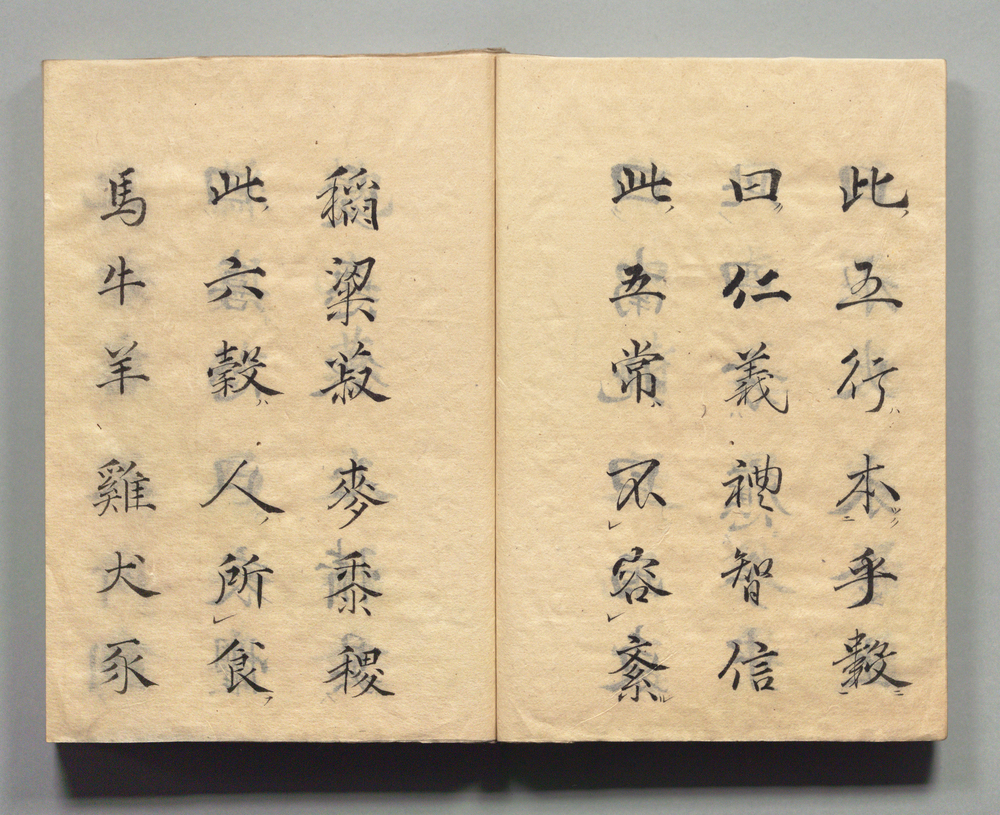 此五行本乎數
曰仁義禮智信
此五常不容紊
稻粱菽麥黍稷
此六穀人所食
馬牛羊雞犬豕